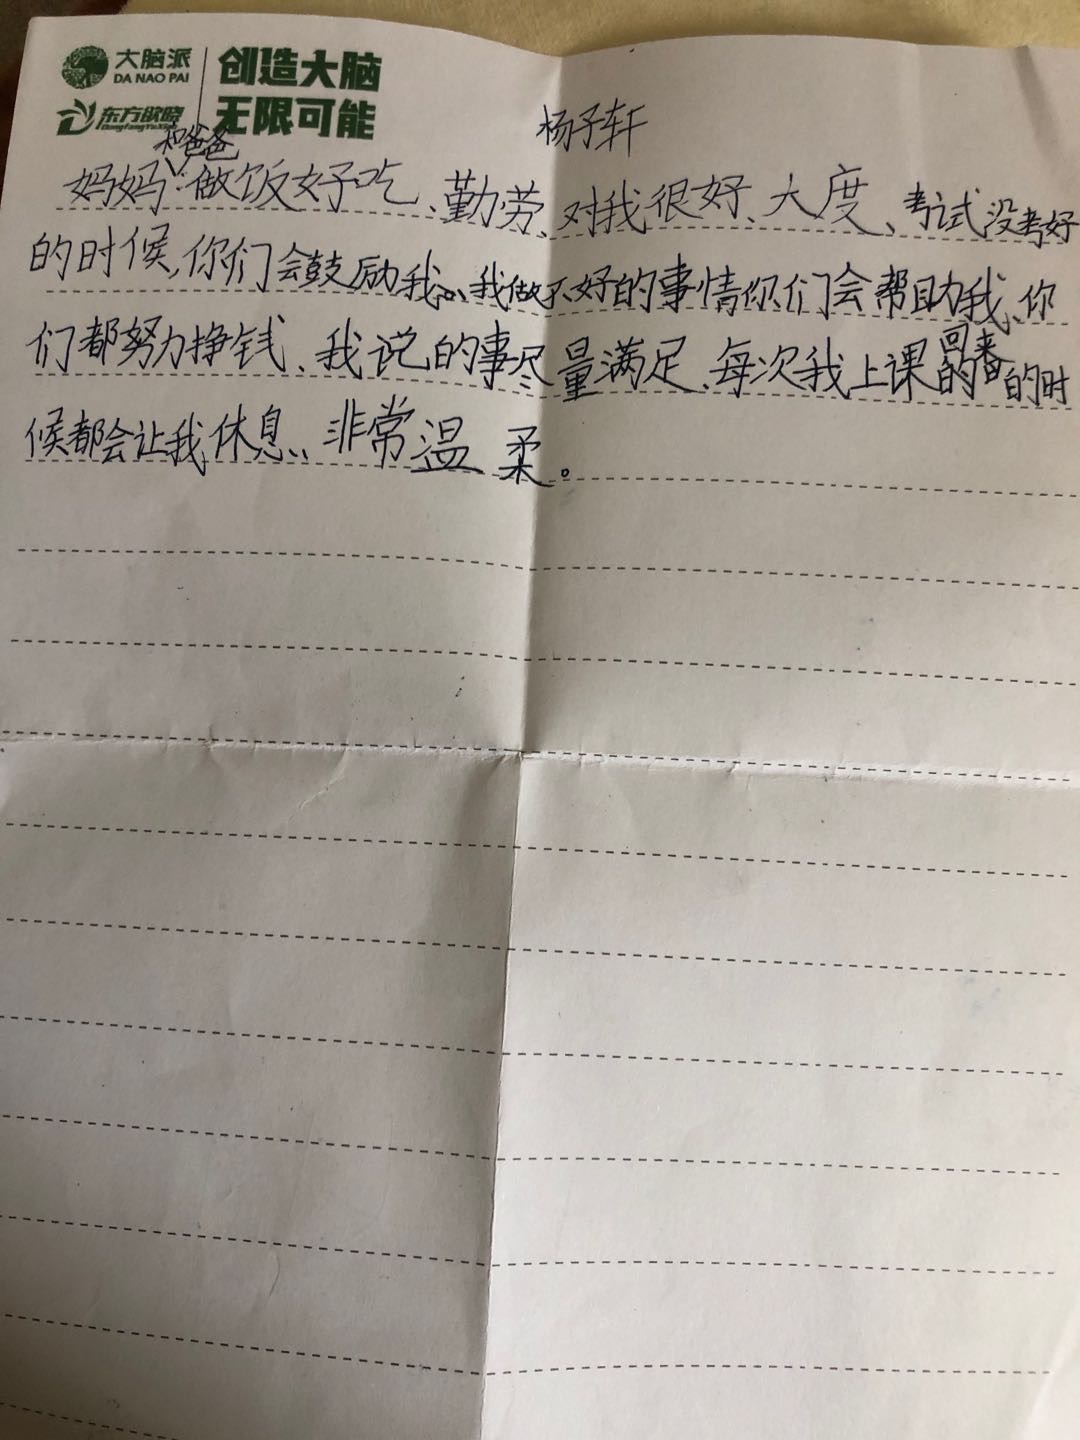 大脑派
DA NAO PAI
东方欲晓
DongFangYuXiao
创造大脑
无限可能
杨子轩
和爸爸
妈妈:做饭好吃、勤劳、对我很好、大度、考试没考好
的时候,你们会鼓励我、我做不好的事情你们会帮助我、你
回来
们都努力挣钱、我说的事尽量满足、每次我上课的时
候都会让我休息、非常温柔。